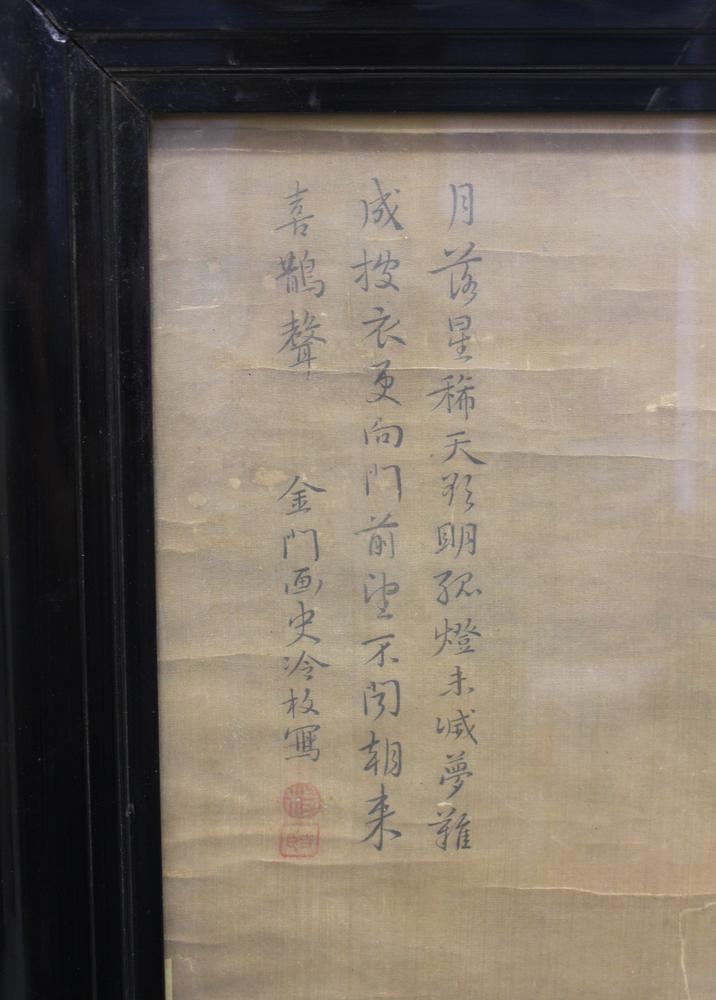 月落星稀天欲明孤燈未滅夢難
成披衣更向門前望不聞朝来
喜鵲聲
金門画史冷枚寫